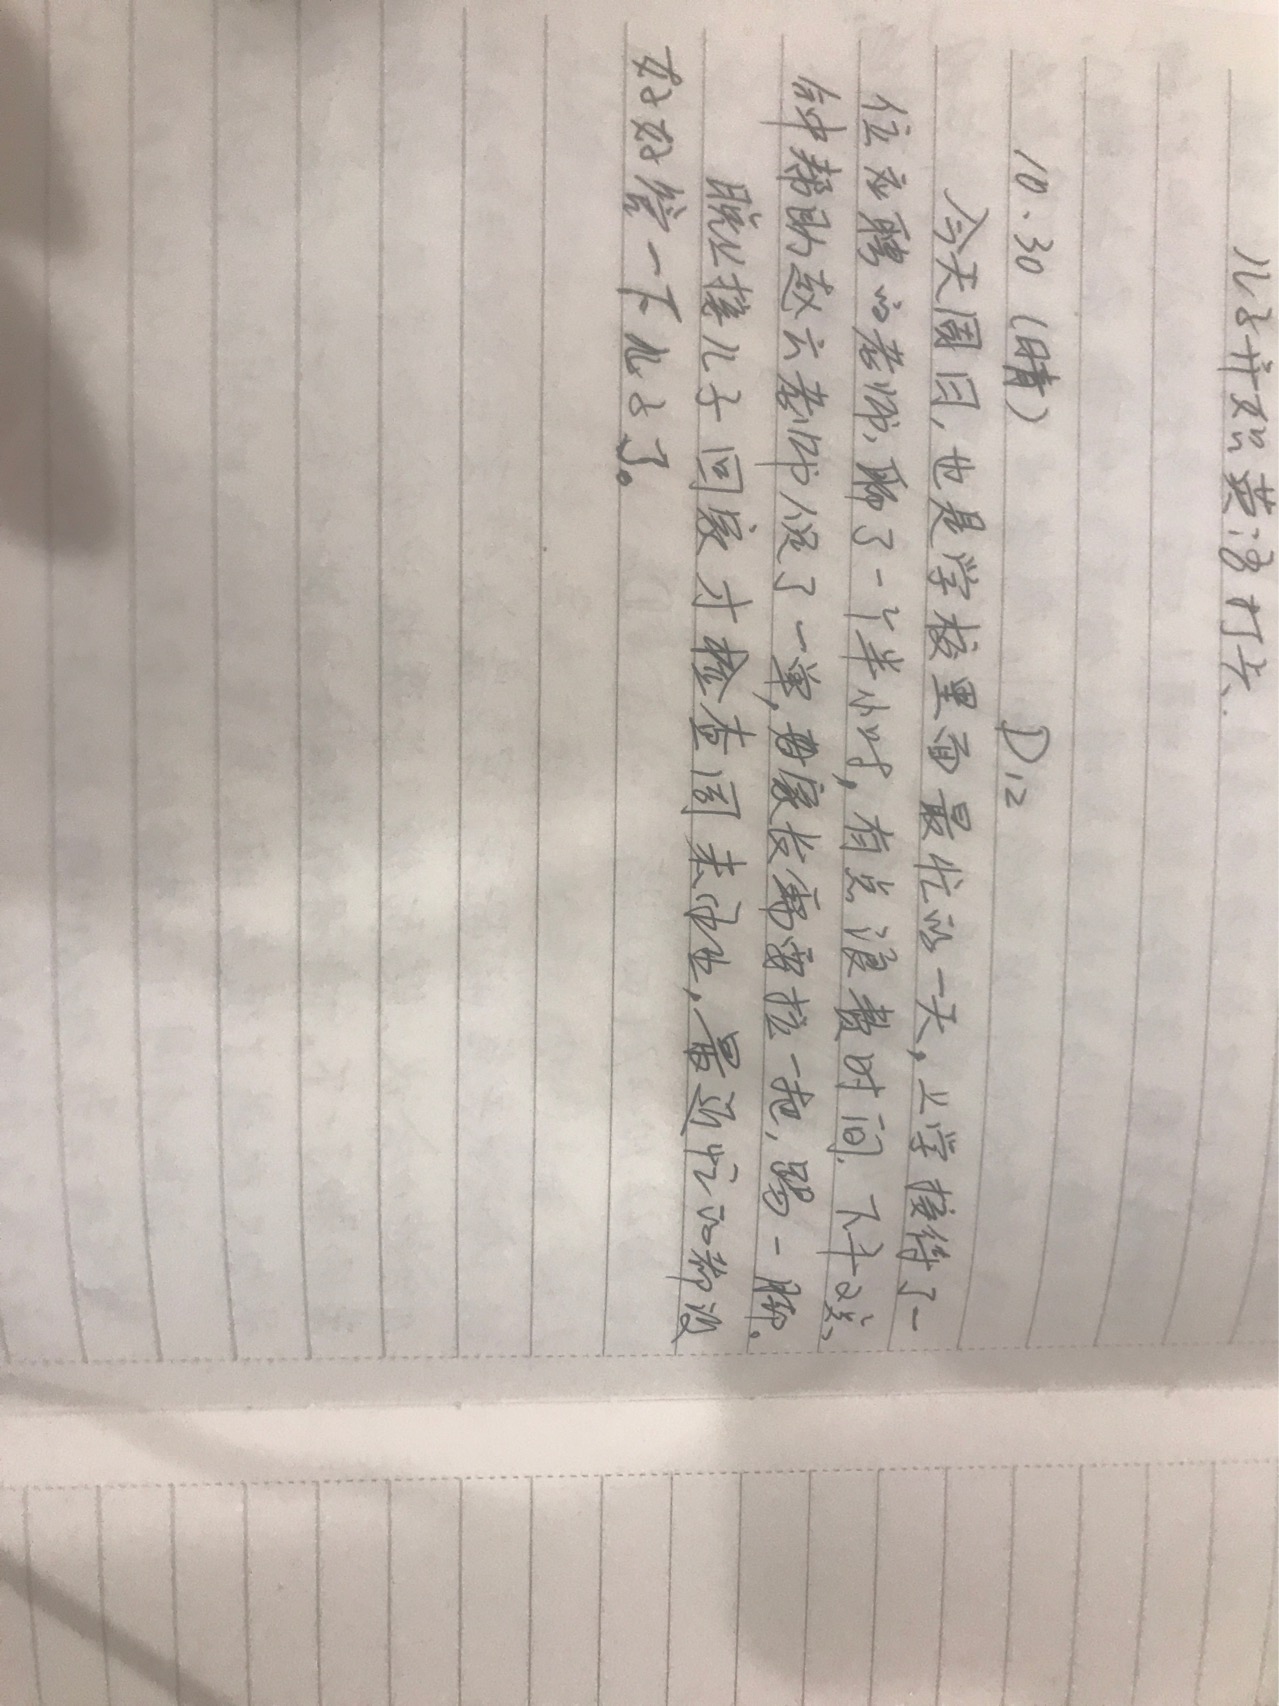 儿子开始英语打卡.
10.30(晴) D12
今天周日,也是学校里面最忙的一天,上学接待了一
位应聘的老师,聊了一个半小时,有点浪费时间.下午
钟帮助赵云老师促了一单,有家长需要拉一把,踢一脚。
晚上接儿子回家才检查周末作业,最近忙的都没
好好管一下儿子了。